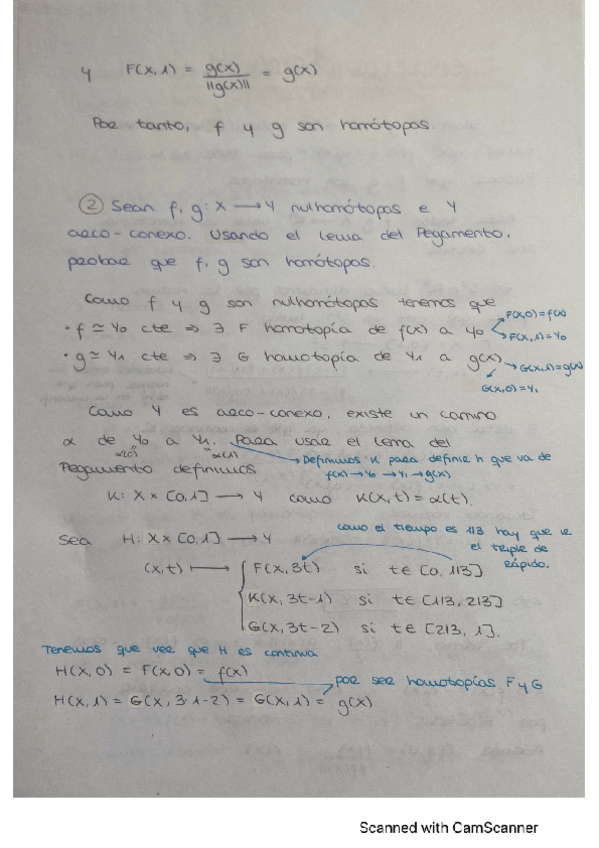 y F(x,1) = g(x)/||g(x)|| = g(x)
Por tanto, f y g son homótopas.
② Sean f, g: X → Y nulhomótopas e Y
arco-conexo. Usando el Lema del Pegamento,
probar que f, g son homótopas.
Como f y g son nulhomótopas tenemos que
· f ≃ y₀ cte ⇒ ∃ F homotopía de f(x) a y₀
F(x,0)=f(x)
F(x,1)=y₀
· g ≃ y₁ cte ⇒ ∃ G homotopía de y₁ a g(x)
G(x,1)=g(x)
G(x,0)=y₁
Como Y es arco-conexo, existe un camino
α de y₀ a y₁. Para usar el Lema del
α(0) α(1)
Definimos K para definir h que va de
f(x)→y₀→y₁→g(x)
Pegamento definimos
K: X × [0,1] → Y como K(x,t) = α(t).
como el tiempo es 1/3 hay que ir
el triple de
rápido.
Sea H: X × [0,1] → Y
(x,t) ↦ { F(x, 3t) si t∈[0, 1/3]
K(x, 3t-1) si t∈[1/3, 2/3]
G(x, 3t-2) si t∈[2/3, 1].
Tenemos que ver que H es continua
H(x,0) = F(x,0) = f(x)
por ser homotopías F y G
H(x,1) = G(x, 3·1-2) = G(x,1) = g(x)
Scanned with CamScanner